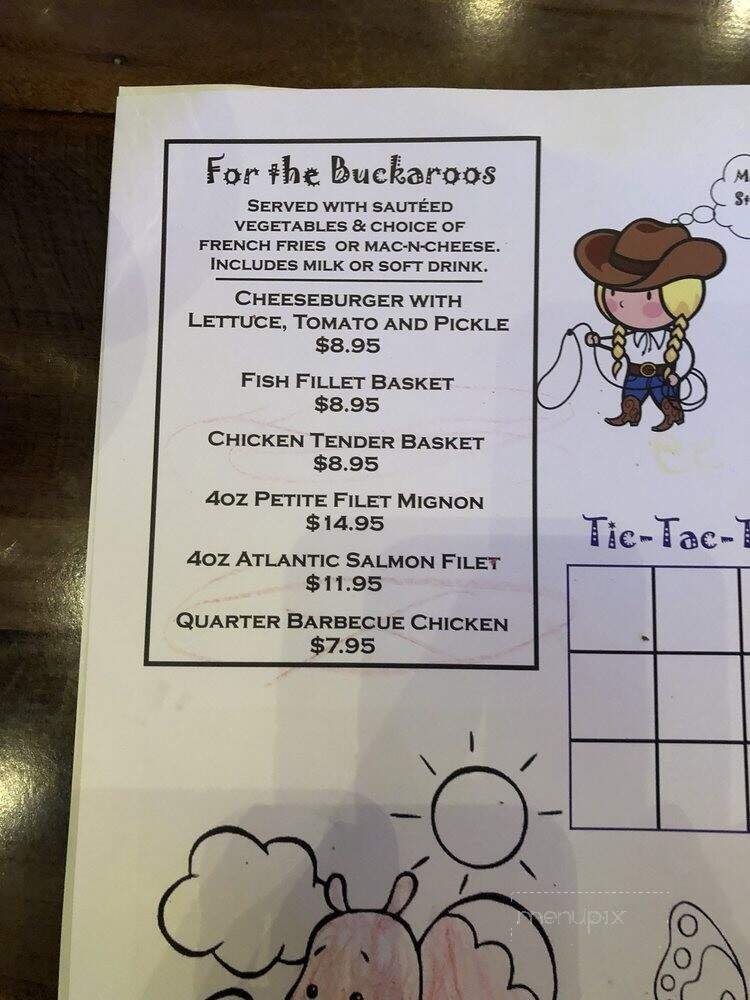 For the Buckaroos
Served with sautéed
vegetables & choice of
french fries or mac-n-cheese.
Includes milk or soft drink.
Cheeseburger with
Lettuce, Tomato and Pickle
$8.95
Fish Fillet Basket
$8.95
Chicken Tender Basket
$8.95
4oz Petite Filet Mignon
$14.95
4oz Atlantic Salmon Filet
$11.95
Quarter Barbecue Chicken
$7.95
Tic-Tac-T
menupix